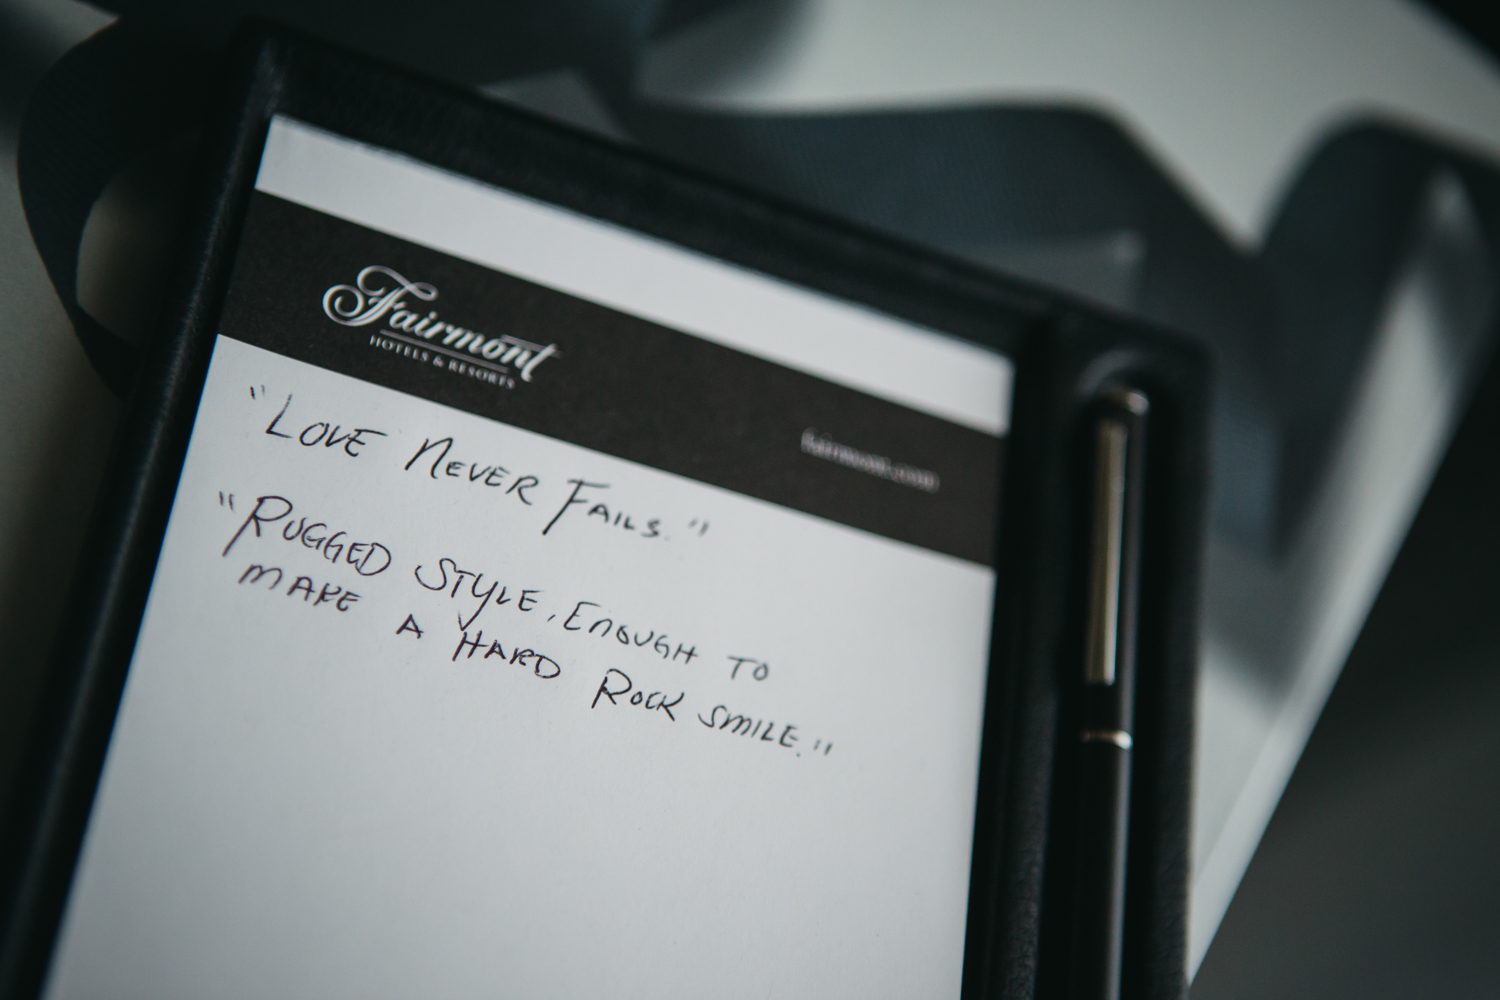 Fairmont
HOTELS & RESORTS
fairmont.com
"LOVE NEVER FAILS."
"RUGGED STYLE, ENOUGH TO
MAKE A HARD ROCK SMILE."